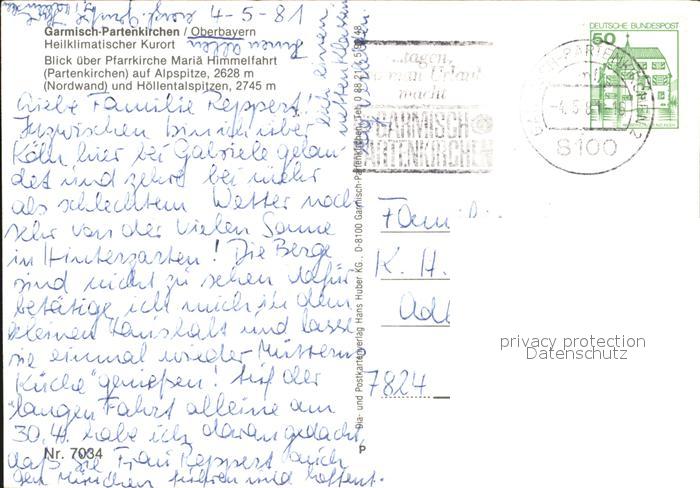 4-5-81
Garmisch-Partenkirchen / Oberbayern
Heilklimatischer Kurort
Blick über Pfarrkirche Mariä Himmelfahrt
(Partenkirchen) auf Alpspitze, 2628 m
(Nordwand) und Höllentalspitzen, 2745 m
Liebe Familie Reppert!
Inzwischen bin ich über
Köln hier bei Gabriele gelan
det und zehre bei mehr
als schlechtem Wetter noch
sehr von der vielen Sonne
in Hinterzarten! Die Berge
sind nicht zu sehen dafür
betätige ich mich in dem
kleinen Haushalt und lasse
sie einmal wieder "Mutterns
Küche" genießen! Auf der
langen Fahrt alleine am
30.4. habe ich daran gedacht,
daß Sie Frau Reppert auch
gen München fuhren und hoffent-
lich einen
netten Klassen
tag verlebten
Ihnen allen
Nr. 7034
Dia- und Postkartenverlag Hans Huber KG., D-8100 Garmisch-Partenkirchen, Tel. 0 88 21
P
...tagen,
wo man Urlaub
macht
GARMISCH
PARTENKIRCHEN
GARMISCH-PARTENKIRCHEN 2
8100
DEUTSCHE BUNDESPOST
50
Fam
K. H.
Adl
7824
privacy protection
Datenschutz